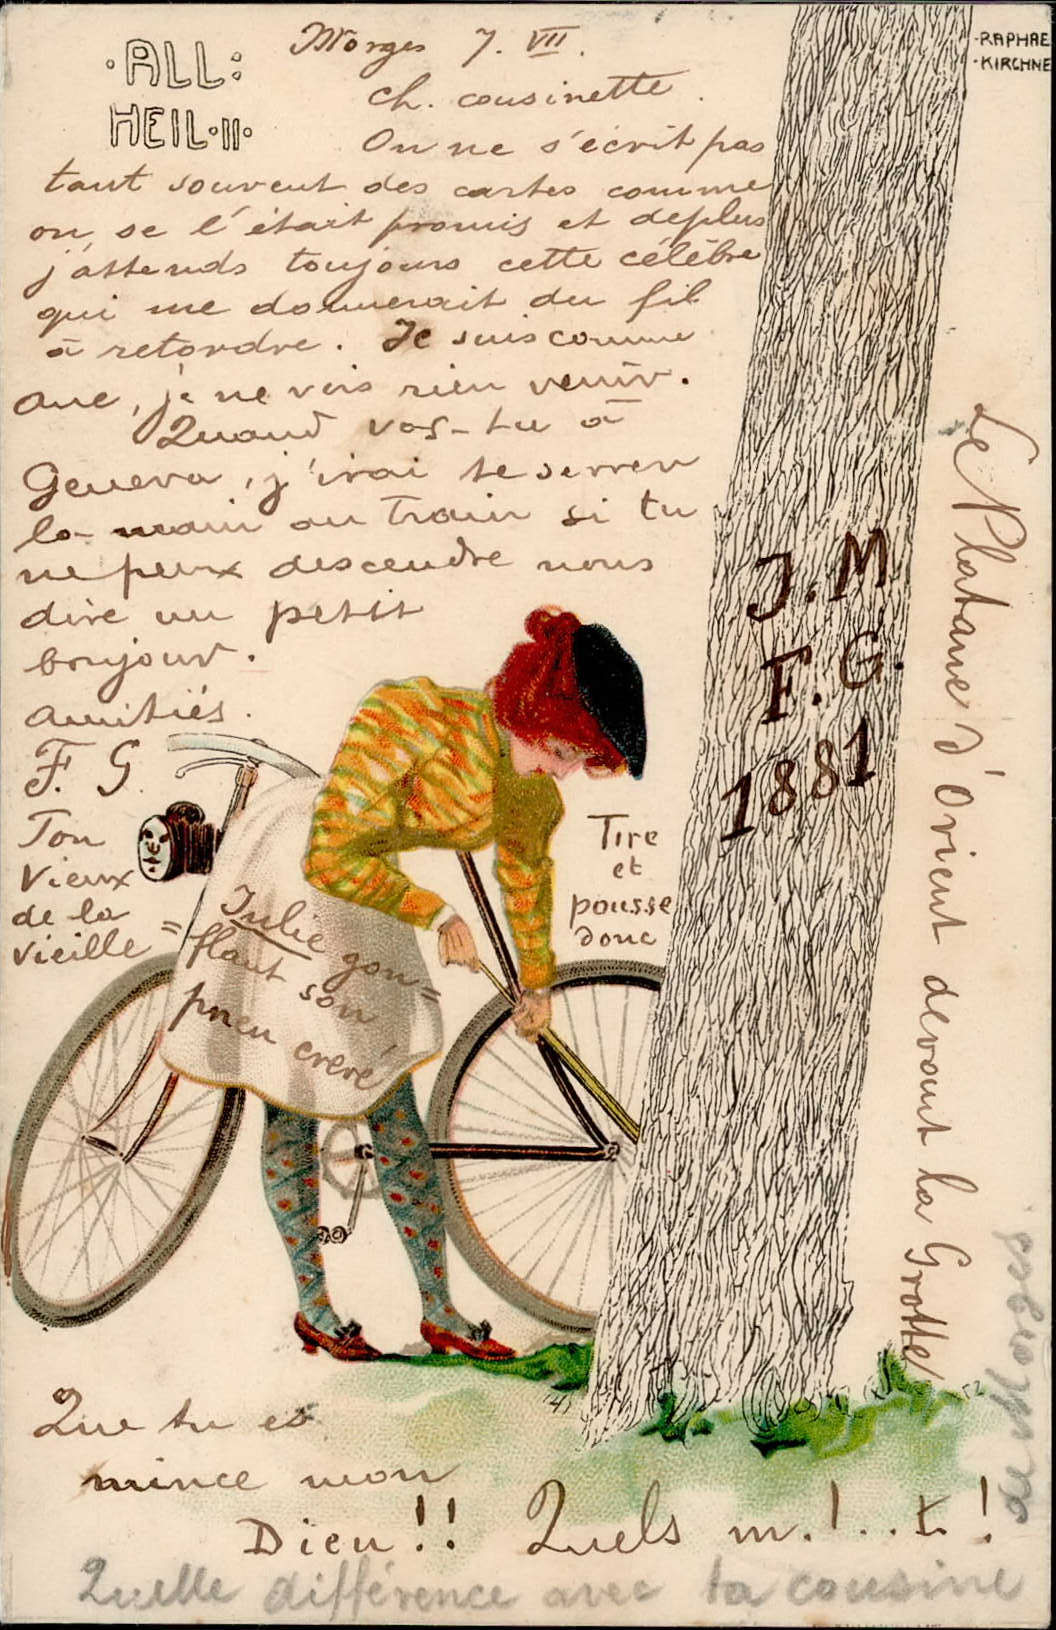 ·ALL:
HEIL·II·
·RAPHAE
·KIRCHNE
Morges 7. VII.
Ch. cousinette.
On ne s'écrit pas
tant souvent des cartes comme
on se l'était promis et deplus
j'attends toujours cette célèbre
qui me donnerait du fil
à retordre. Je suis comme
Ane, je ne vois rien venir.
Quand vas-tu à
Geneva, j'irai te serrer
la main au train si tu
ne peux descendre nous
dire un petit
bonjour.
Amitiés.
F. G.
Ton
vieux
de la
vieille
Julie gon=
=flant son
pneu crevé
Tire
et
pousse
donc
J. M
F. G.
1881
Le Platane d'Orient devant la Grotte
de Morges
Que tu es
mince mon
Dieu!! Quels m.!..t.!
Quelle différence avec ta cousine